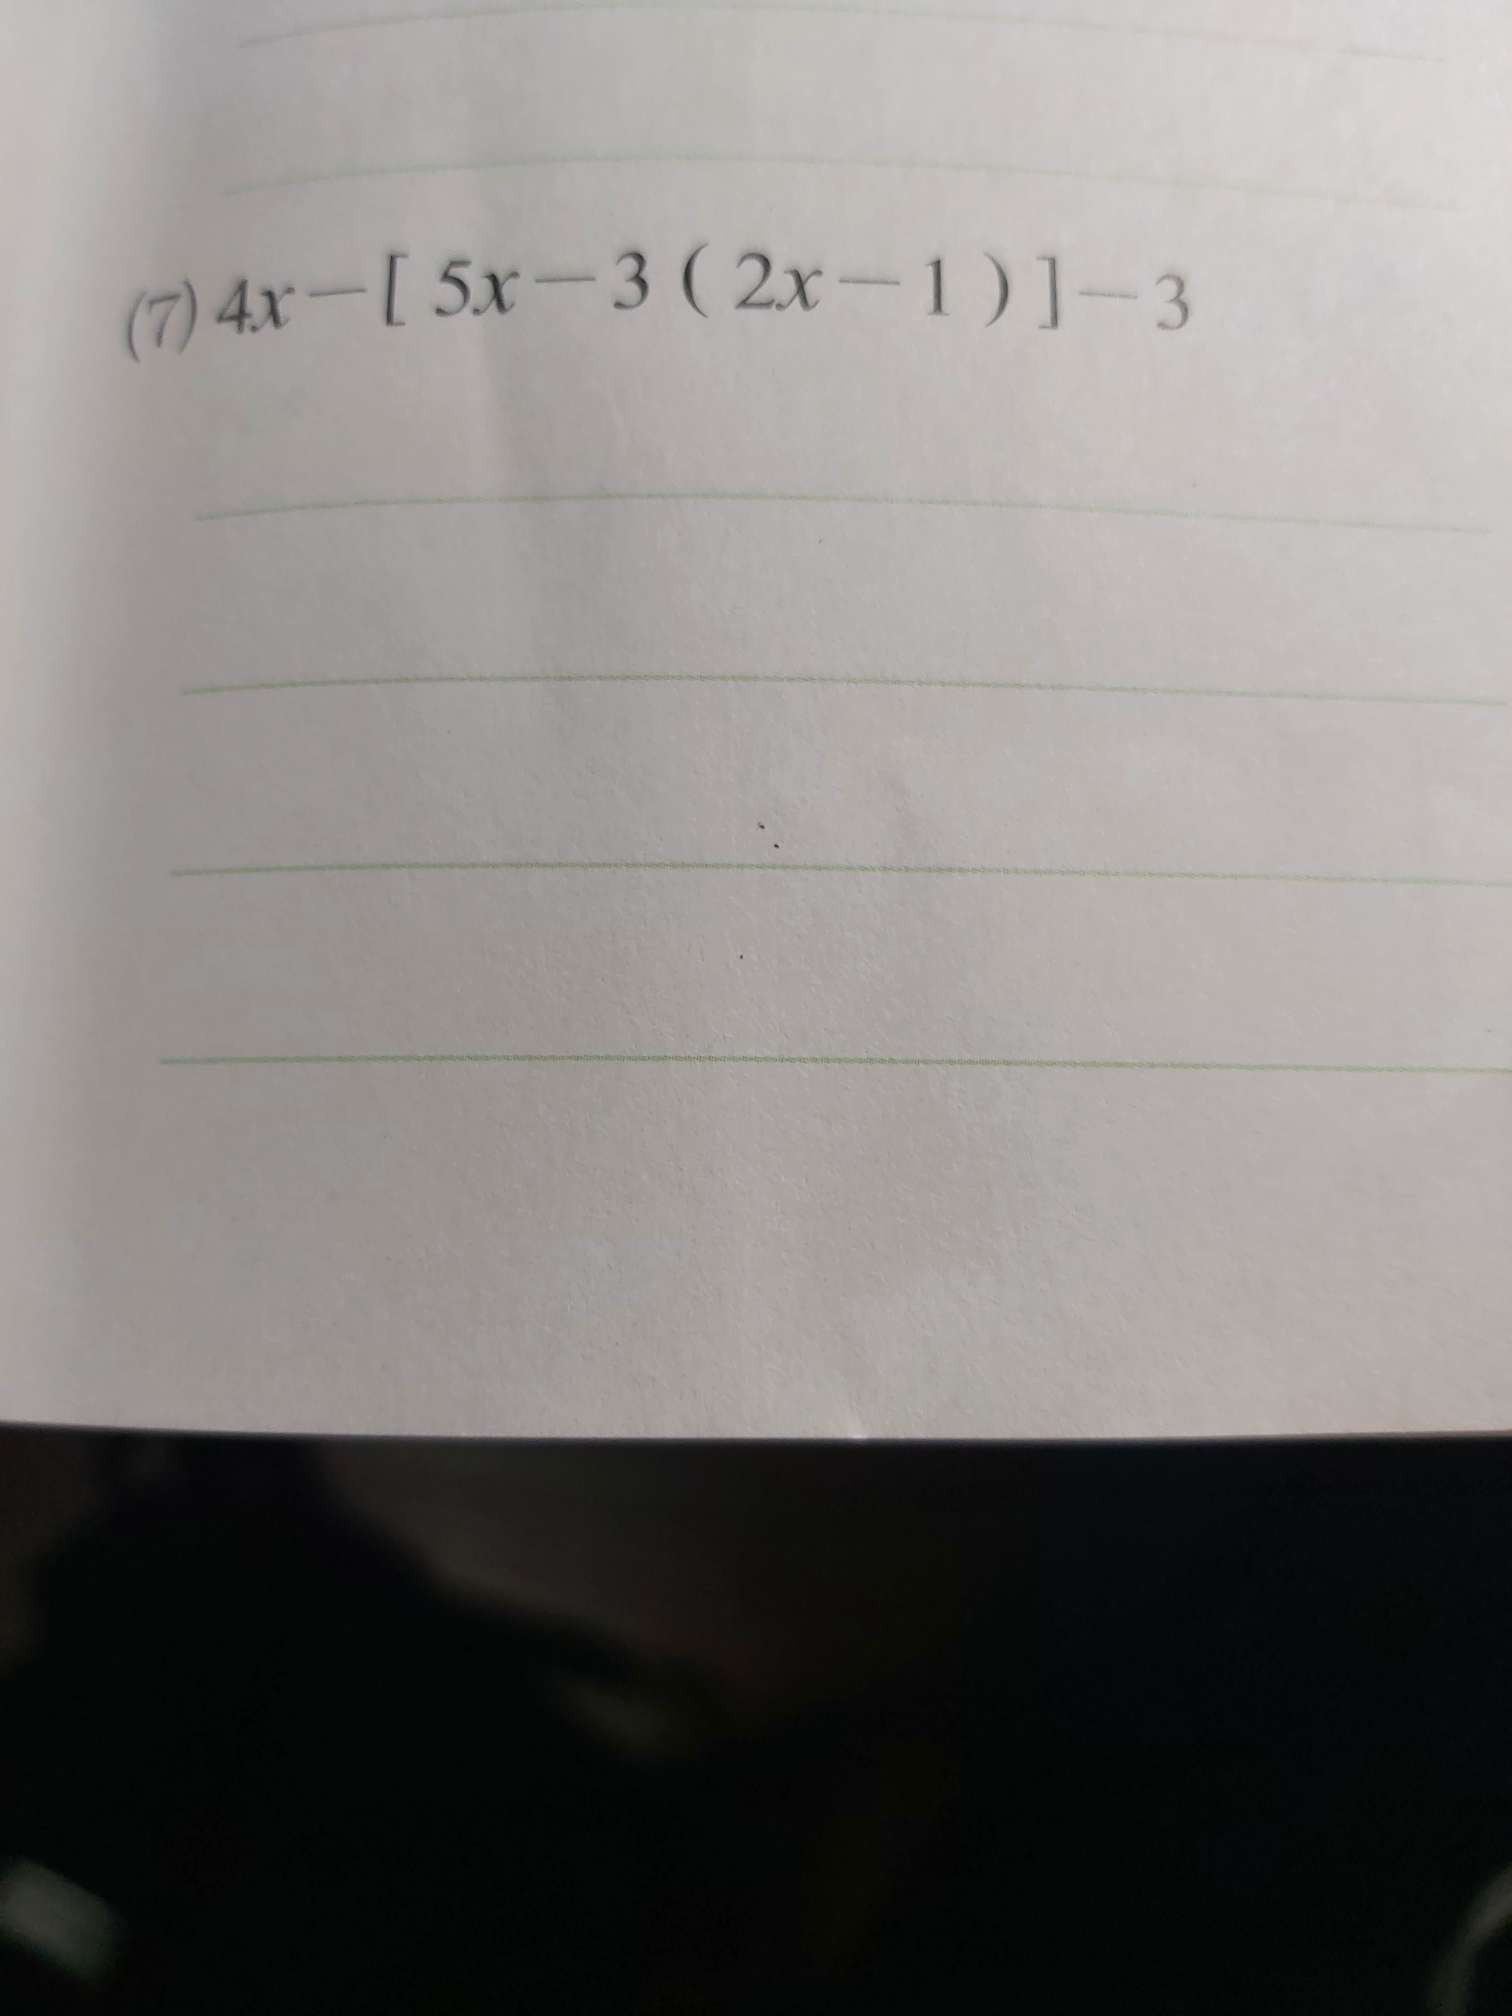 (7) 4x－[ 5x－3 ( 2x－1 ) ]－3